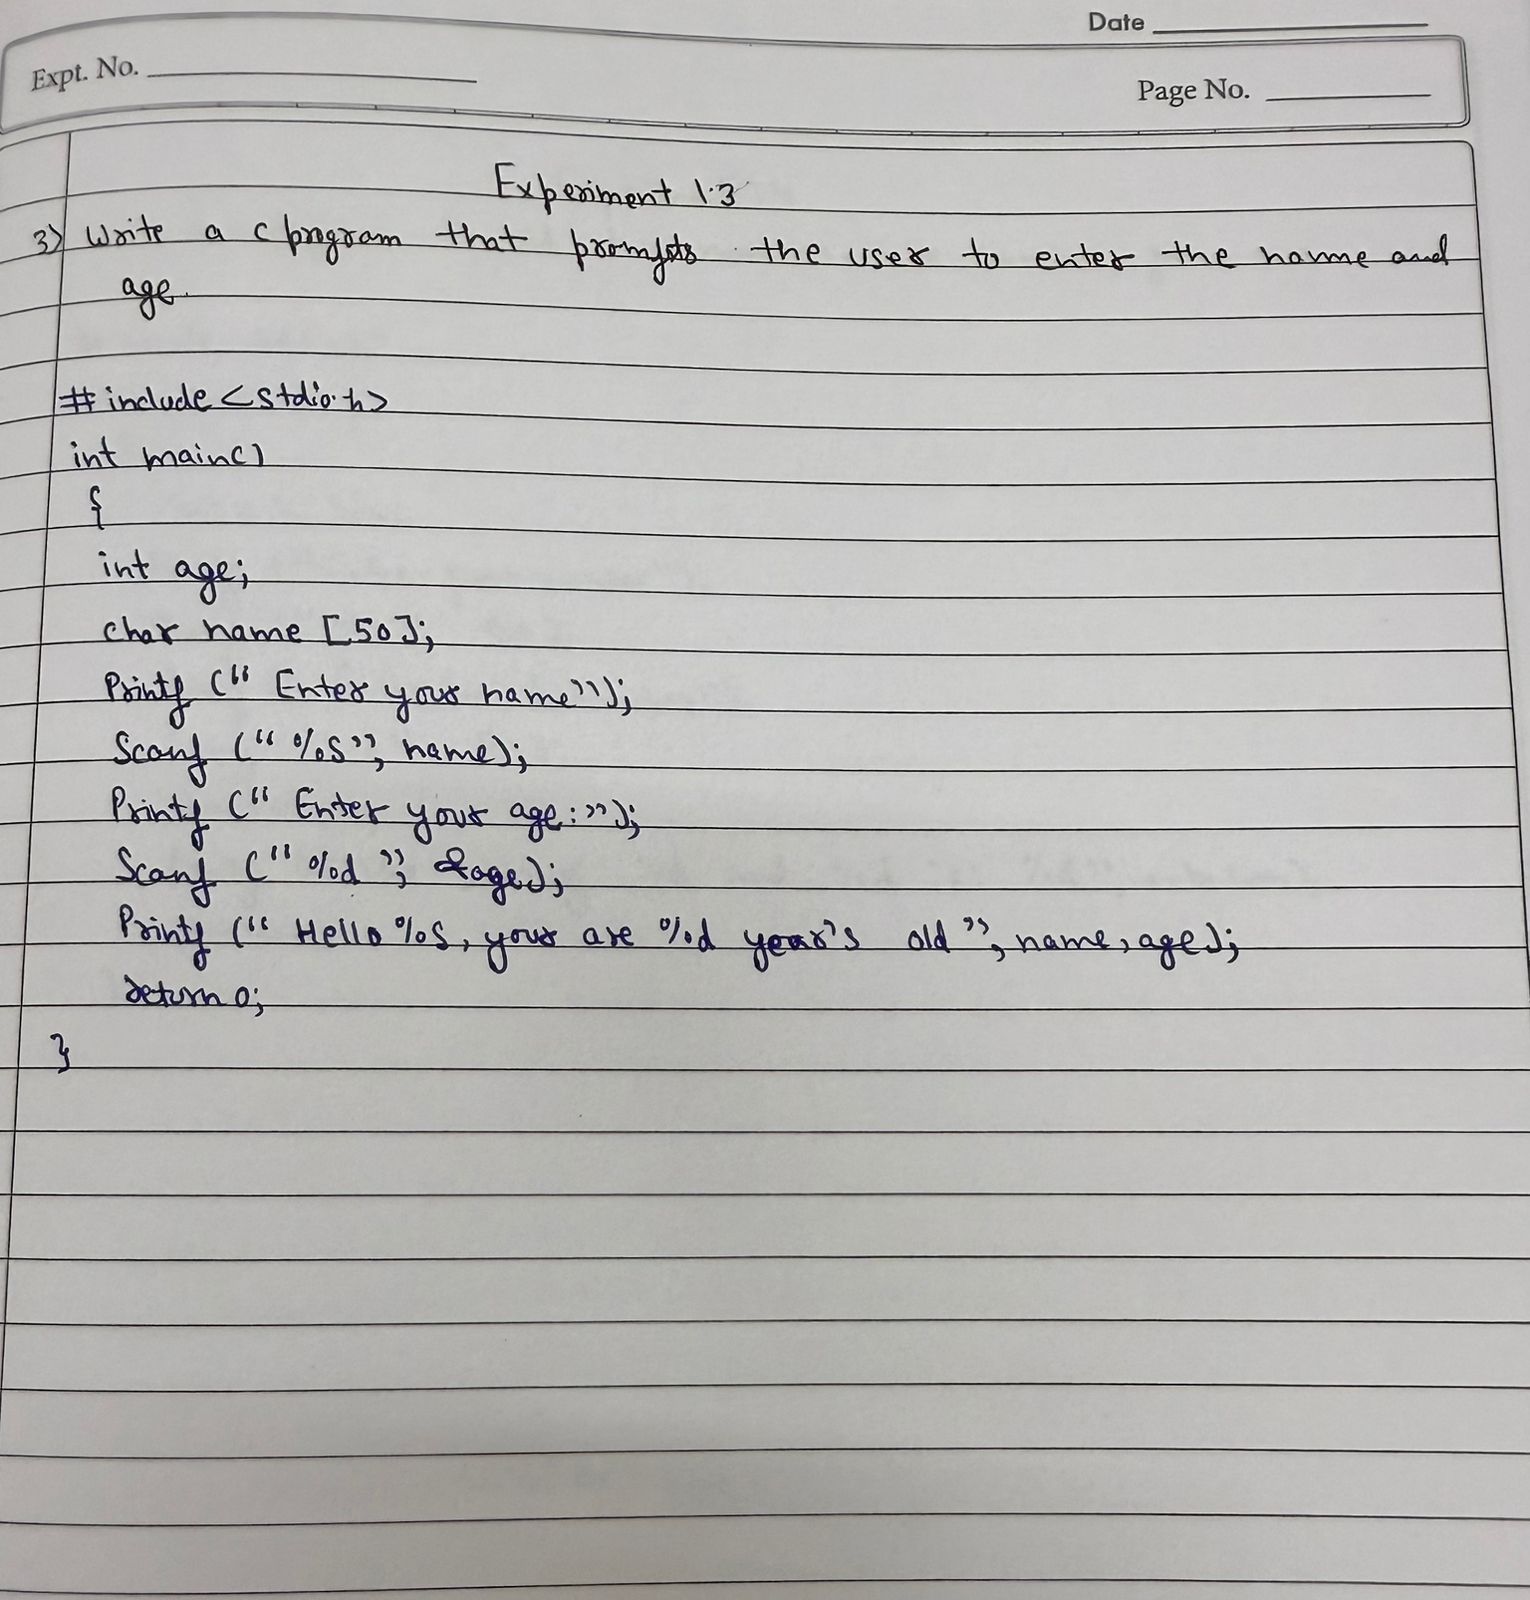 Date
Expt. No.
Page No.
Experiment 1.3
3) Write a c program that prompts the user to enter the name and
age.
#include <stdio.h>
int main()
{
int age;
char name [50];
Printf (" Enter your name");
Scanf ("%s", name);
Printf (" Enter your age:");
Scanf ("%d", &age);
Printf (" Hello %s, your are %d year's old", name, age);
return 0;
}